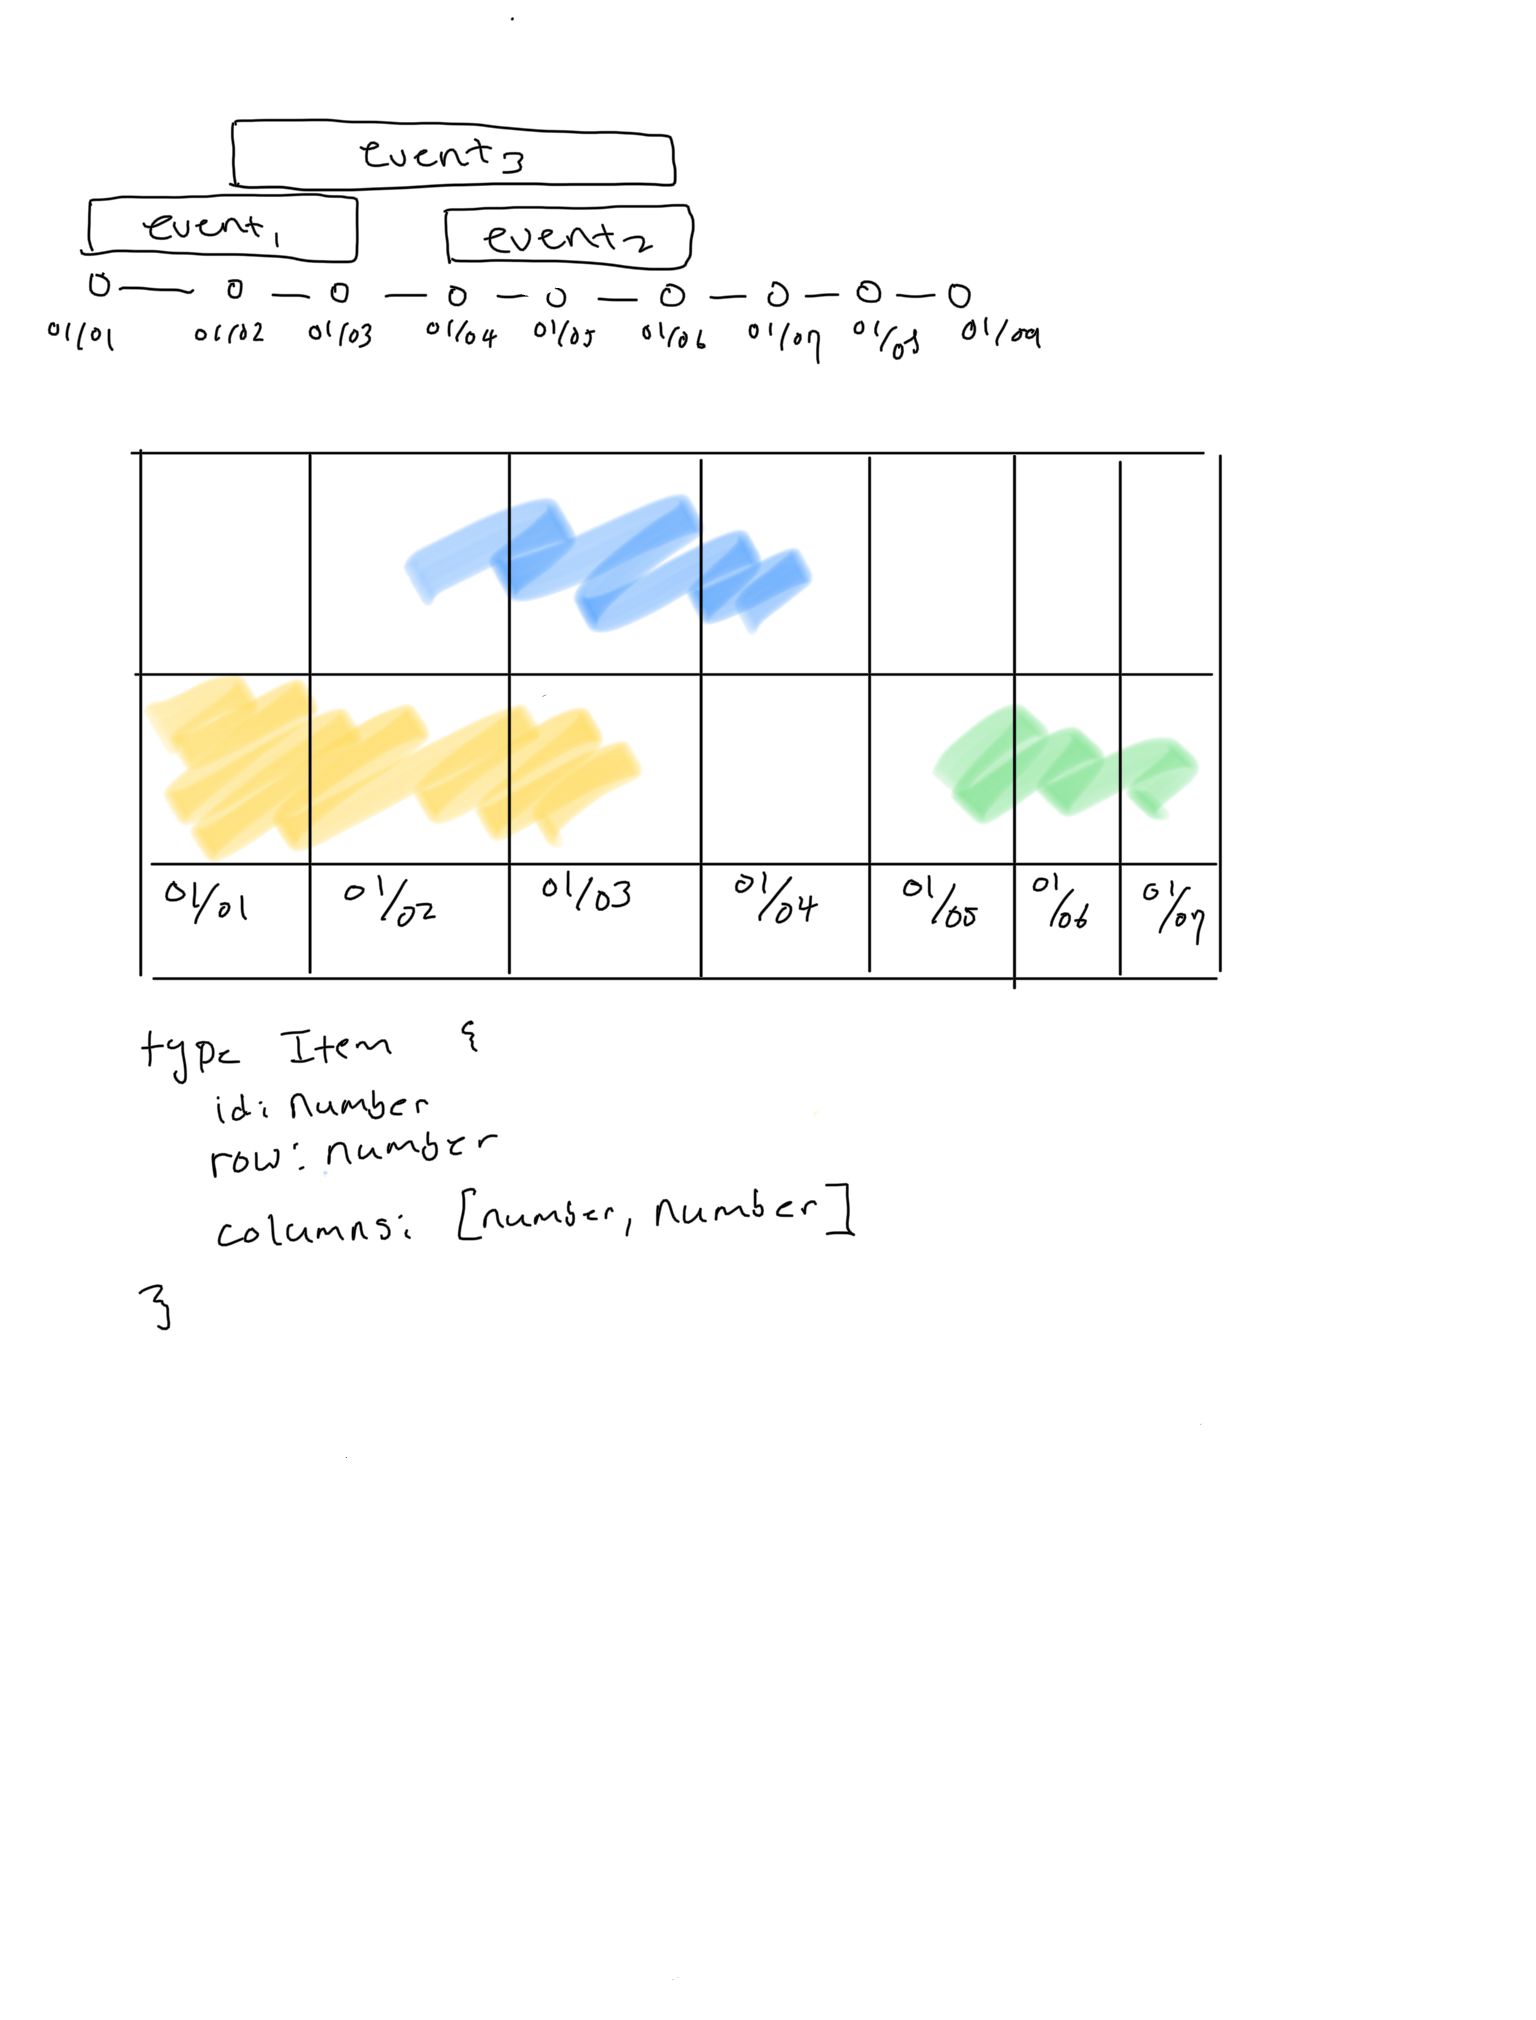 event3
event1 event2
01/01 01/02 01/03 01/04 01/05 01/06 01/07 01/08 01/09
01/01 01/02 01/03 01/04 01/05 01/06 01/07
type Item {
id: number
row: number
columns: [number, number]
}